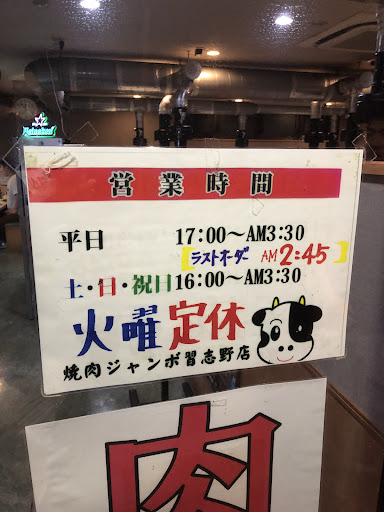 Heineken
営業時間
平日 17:00～AM3:30
【ラストオーダー AM 2:45】
土・日・祝日 16:00～AM3:30
火曜定休
焼肉ジャンボ習志野店
肉